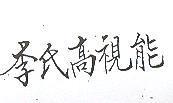 李氏高視能